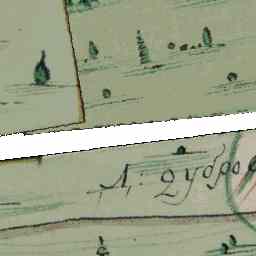 Д: Дубро